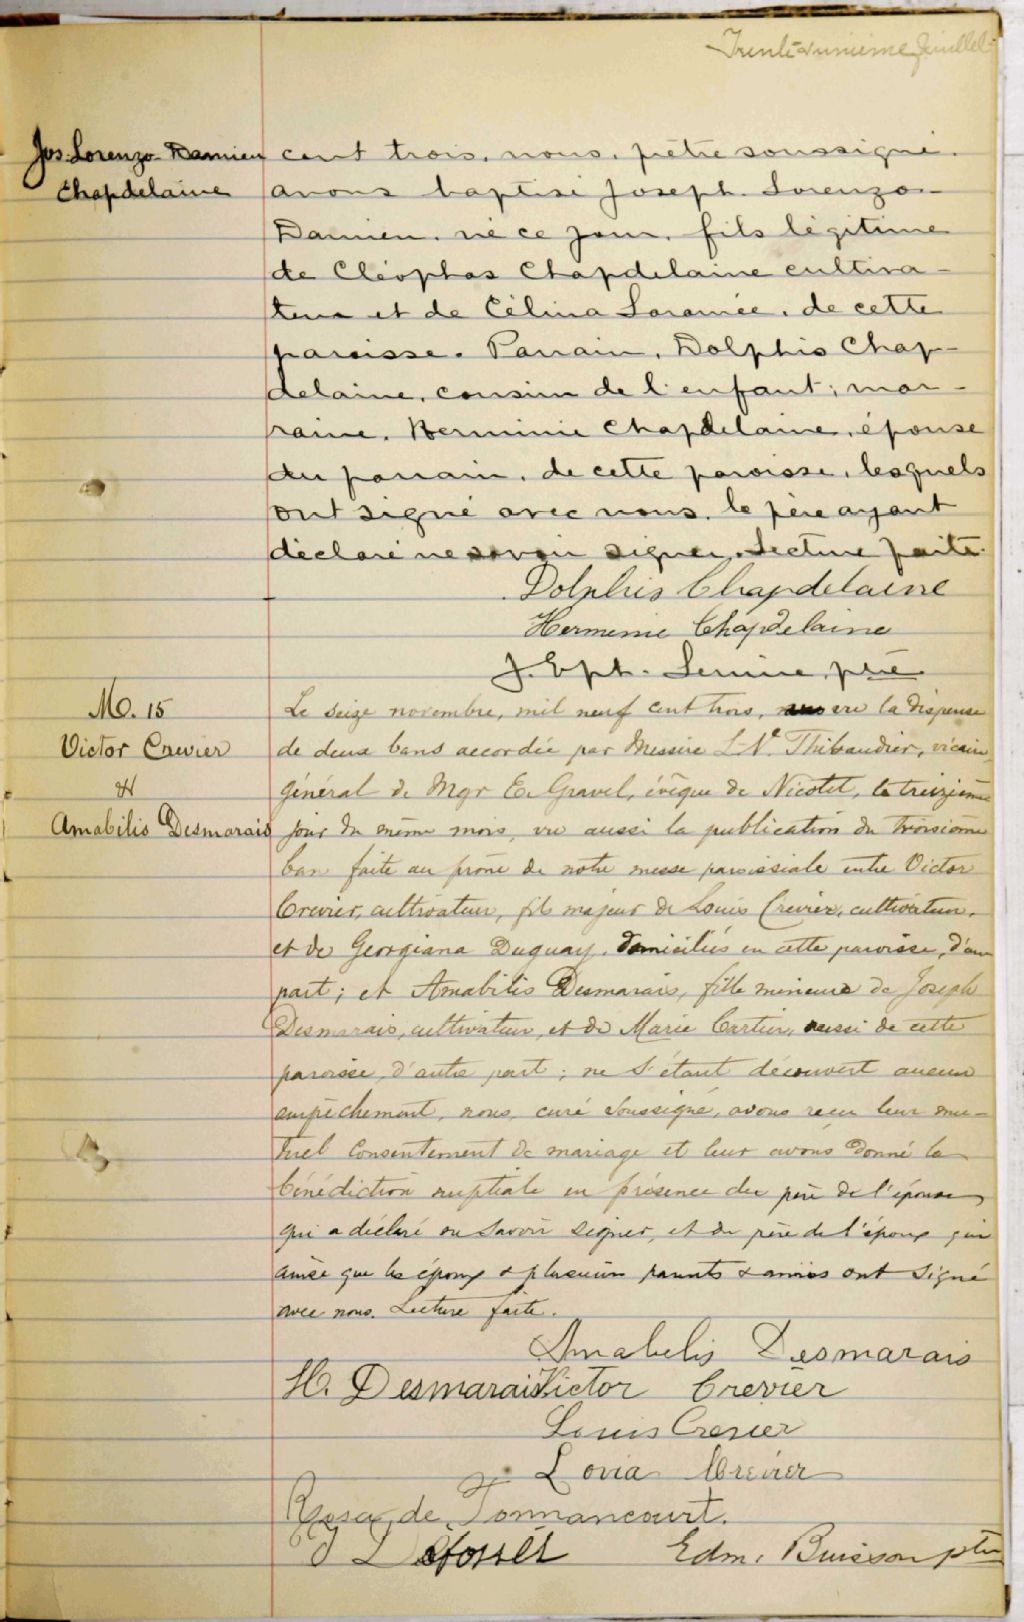 Trente-unième feuillet
Jos. Lorenzo Damien
Chapdelaine
cent trois, nous, prêtre soussigné.
avons baptisé Joseph Lorenzo
Damien, né ce jour, fils légitime
de Cléophas Chapdelaine cultiva-
teur et de Célina Laramée, de cette
paroisse. Parrain, Dolphis Chap-
delaine, cousin de l'enfant; mar-
raine, Herminie Chapdelaine, épouse
du parrain, de cette paroisse, lesquels
ont signé avec nous, le père ayant
déclaré ne savoir signer. Lecture faite.
Dolphis Chapdelaine
Hermenie Chapdelaine
J. Eph. Lemire, ptre
M. 15
Victor Crevier
&
Amabilis Desmarais
Le seize novembre, mil neuf cent trois, vu la dispense
de deux bans accordée par Messire Thibaudier, vicaire
général de Mgr E. Gravel, évêque de Nicolet, le treizième
jour du même mois, vu aussi la publication du troisième
ban faite au prône de notre messe paroissiale entre Victor
Crevier, cultivateur, fils majeur de Louis Crevier, cultivateur,
et de Georgiana Duguay, domiciliés en cette paroisse, d'une
part; et Amabilis Desmarais, fille mineure de Joseph
Desmarais, cultivateur, et de Marie Cartier, aussi de cette
paroisse, d'autre part; ne s'étant découvert aucun
empêchement, nous, curé soussigné, avons reçu leur mu-
tuel consentement de mariage et leur avons donné la
bénédiction nuptiale en présence du père de l'épouse
qui a déclaré ne savoir signer, et du père de l'époux qui
ainsi que les époux & plusieurs parents & amis ont signé
avec nous. Lecture faite.
Amabelis Desmarais
H. Desmarais Victor Crevier
Louis Crevier
Lovia Crevier
Rosa de Tonnancourt.
Edm. Buisson ptre